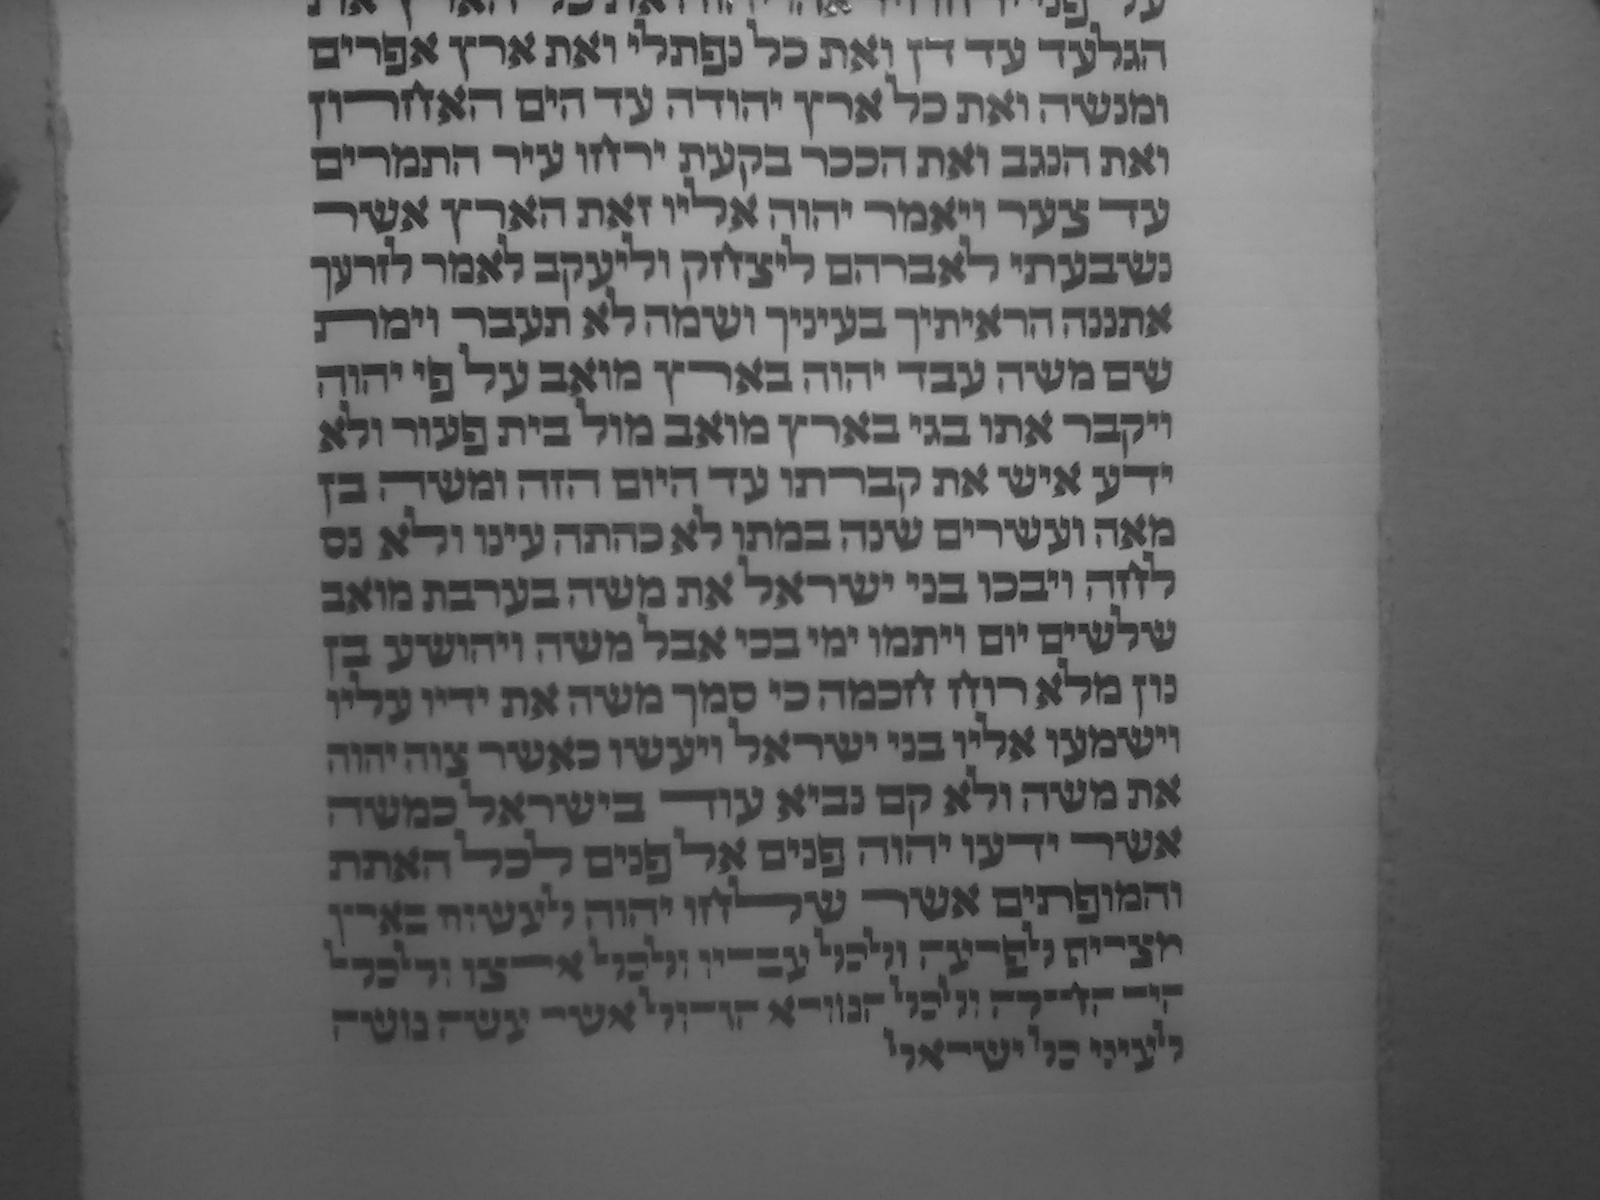 הגלעד עד דן ואת כל נפתלי ואת ארץ אפרים
ומנשה ואת כל ארץ יהודה עד הים האחרון
ואת הנגב ואת הככר בקעת ירחו עיר התמרים
עד צער ויאמר יהוה אליו זאת הארץ אשר
נשבעתי לאברהם ליצחק וליעקב לאמר לזרעך
אתננה הראיתיך בעיניך ושמה לא תעבר וימת
שם משה עבד יהוה בארץ מואב על פי יהוה
ויקבר אתו בגי בארץ מואב מול בית פעור ולא
ידע איש את קברתו עד היום הזה ומשה בן
מאה ועשרים שנה במתו לא כהתה עינו ולא נס
לחה ויבכו בני ישראל את משה בערבת מואב
שלשים יום ויתמו ימי בכי אבל משה ויהושע בן
נון מלא רוח חכמה כי סמך משה את ידיו עליו
וישמעו אליו בני ישראל ויעשו כאשר צוה יהוה
את משה ולא קם נביא עוד בישראל כמשה
אשר ידעו יהוה פנים אל פנים לכל האתת
והמופתים אשר שלחו יהוה לעשות בארץ
מצרים לפרעה ולכל עבדיו ולכל ארצו ולכל
היד החזקה ולכל המורא הגדול אשר עשה משה
לעיני כל ישראל